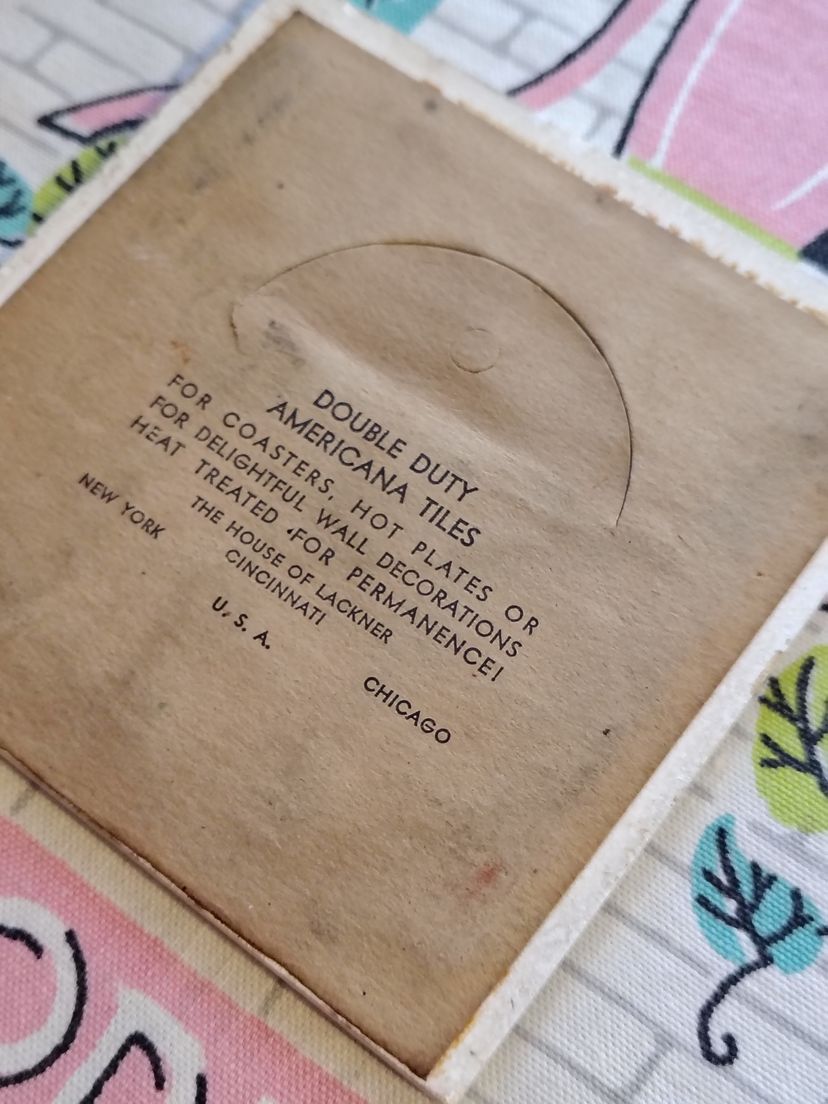 DOUBLE DUTY
AMERICANA TILES
FOR COASTERS, HOT PLATES OR
FOR DELIGHTFUL WALL DECORATIONS
HEAT TREATED FOR PERMANENCE!
THE HOUSE OF LACKNER
NEW YORK CINCINNATI CHICAGO
U. S. A.